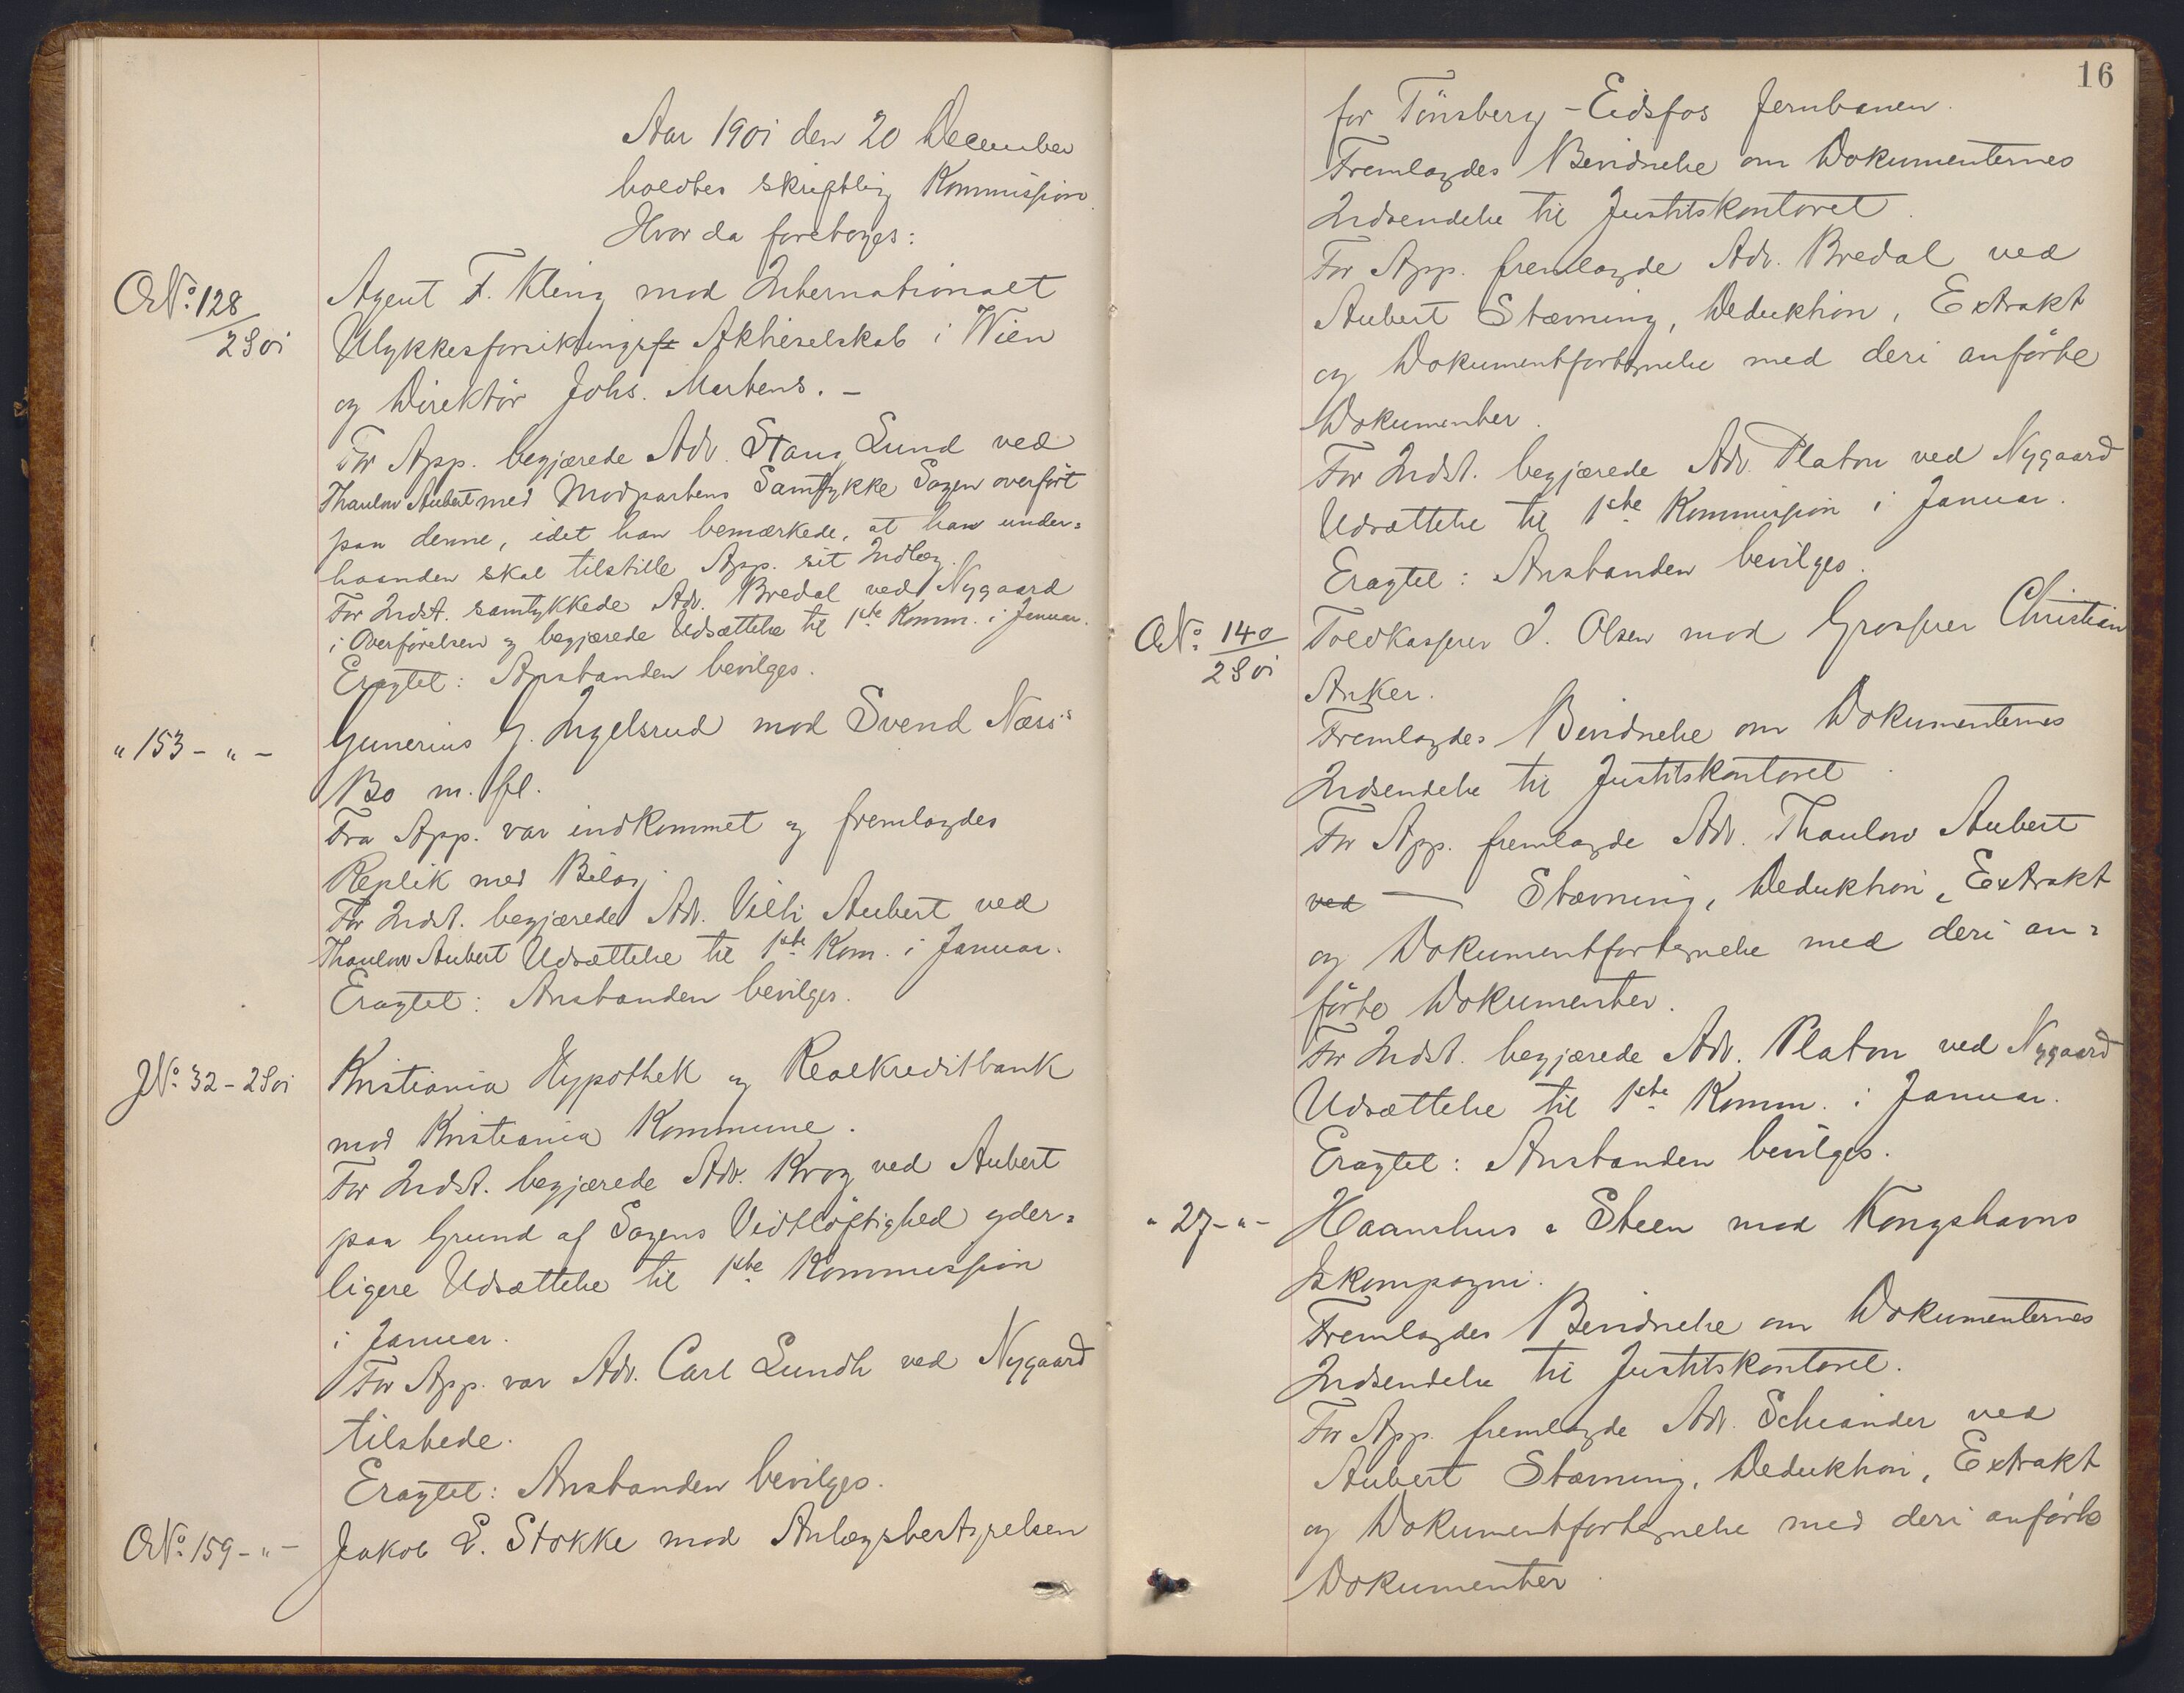 Aar 1901 den 20 December
holdtes skriftlig Kommission.
Hvor da foretoges:
O№ 128/2S01
Agent F. Kling mod Internationalt
Ulykkesforsikrings Aktieselskab i Wien
og Direktör Johs. Mertens. –
For App. begjærede Adv. Stang Lund ved
Thaulow Aubert med Modpartens Samtykke Sagen overfört
paa denne, idet han bemærkede, at han under=
haanden skal tilstille App. sit Indlæg.
For Indst. samtykkede Adv. Bredal ved Nygaard
i Overförelsen og begjærede Udsættelse til 1ste Komm. i Januar.
Eragtet: Anstanden bevilges.
" 153 - " -
Gunerius G. Ingelsrud mod Svend Næss's
Bo m. fl.
Fra App. var indkommet og fremlagdes
Replik med Bilag.
For Indst. begjærede Adv. Vilh Aubert ved
Thaulow Aubert Udsættelse til 1ste Kom. i Januar.
Eragtet: Anstanden bevilges.
J№ 32 - 2S01
Kristiania Hypothek og Realkreditbank
mod Kristiania Kommune.
For Indst. begjærede Adv. Krog ved Aubert
paa Grund af Sagens Vidtlöftighed yder=
ligere Udsættelse til 1ste Kommission
i Januar.
For App. var Adv. Carl Lundh ved Nygaard
tilstede.
Eragtet: Anstanden bevilges.
O№ 159 - " -
Jakob E. Stokke mod Anlægsbestyrelsen
16
for Tönsberg - Eidsfos Jernbanen.
Fremlagdes Bevidnelse om Dokumenternes
Indsendelse til Justitskontoret.
For App. fremlagde Adv. Bredal ved
Aubert Stævning, Deduktion, Extrakt
og Dokumentfortegnelse med deri anförte
Dokumenter.
For Indst. begjærede Adv. Platou ved Nygaard
Udsættelse til 1ste Kommission i Januar.
Eragtet: Anstanden bevilges.
O№ 140/2S01
Toldkasserer J. Olsen mod Grosserer Christian
Anker.
Fremlagdes Bevidnelse om Dokumenternes
Indsendelse til Justitskontoret.
For App. fremlagde Adv. Thaulow Aubert
ved — Stævning, Deduktion, Extrakt
og Dokumentfortegnelse med deri an=
förte Dokumenter.
For Indst. begjærede Adv. Platou ved Nygaard
Udsættelse til 1ste Komm. i Januar.
Eragtet: Anstanden bevilges.
" 27 - " -
Haamshus & Steen mod Kongshavns
Iskompagni.
Fremlagdes Bevidnelse om Dokumenternes
Indsendelse til Justitskontoret.
For App. fremlagde Adv. Schiander ved
Aubert Stævning, Deduktion, Extrakt
og Dokumentfortegnelse med deri anförte
Dokumenter.